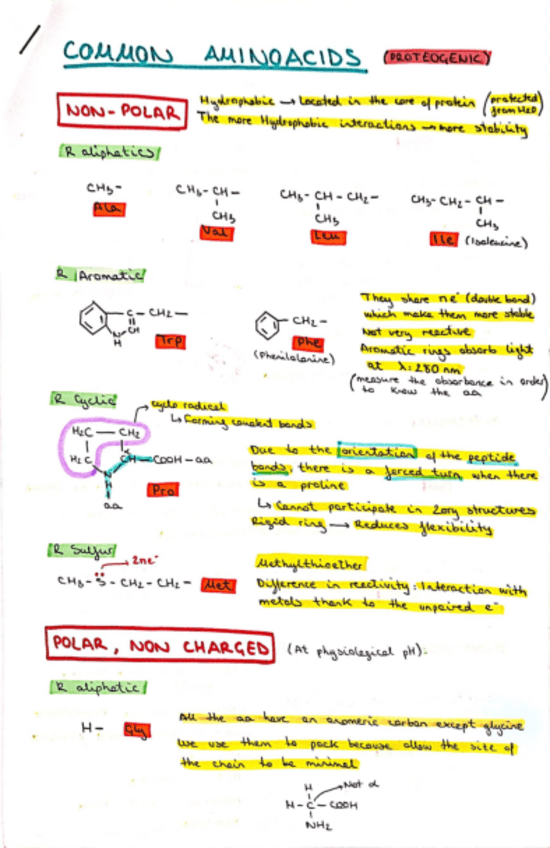 COMMON AMINOACIDS (PROTEOGENIC)
NON-POLAR
Hydrophobic → Located in the core of protein (protected from H2O)
The more Hydrophobic interactions → more stability
R aliphatics
CH3-
Ala
CH3-CH-
CH3
Val
CH3-CH-CH2-
CH3
Leu
CH3-CH2-CH-
CH3
Ile (Isoleucine)
R Aromatic
C - CH2-
CH
N
H
Trp
CH2-
Phe
(Phenilalanine)
They share π e- (double bond)
which make them more stable
Not very reactive
Aromatic rings absorb light
at λ: 280 nm
(measure the absorbance in order
to know the aa)
R Cyclic
cyclo radical
↳ Forming covalent bonds
H2C - CH2
H2C CH-COOH-aa
N
H
aa
Pro
Due to the orientation of the peptide
bonds, there is a forced turn when there
is a proline
↳ Cannot participate in 2ary structures
Rigid ring → Reduces flexibility
R Sulfur
→ 2ne-
CH3-S-CH2-CH2- Met
Methylthioether
Difference in reactivity: Interaction with
metals thank to the unpaired e-
POLAR, NON CHARGED (At physiological pH):
R aliphatic
H- Gly
All the aa have an anomeric carbon except glycine
We use them to pack because allow the site of
the chain to be minimal
H → Not α
H-C-COOH
NH2